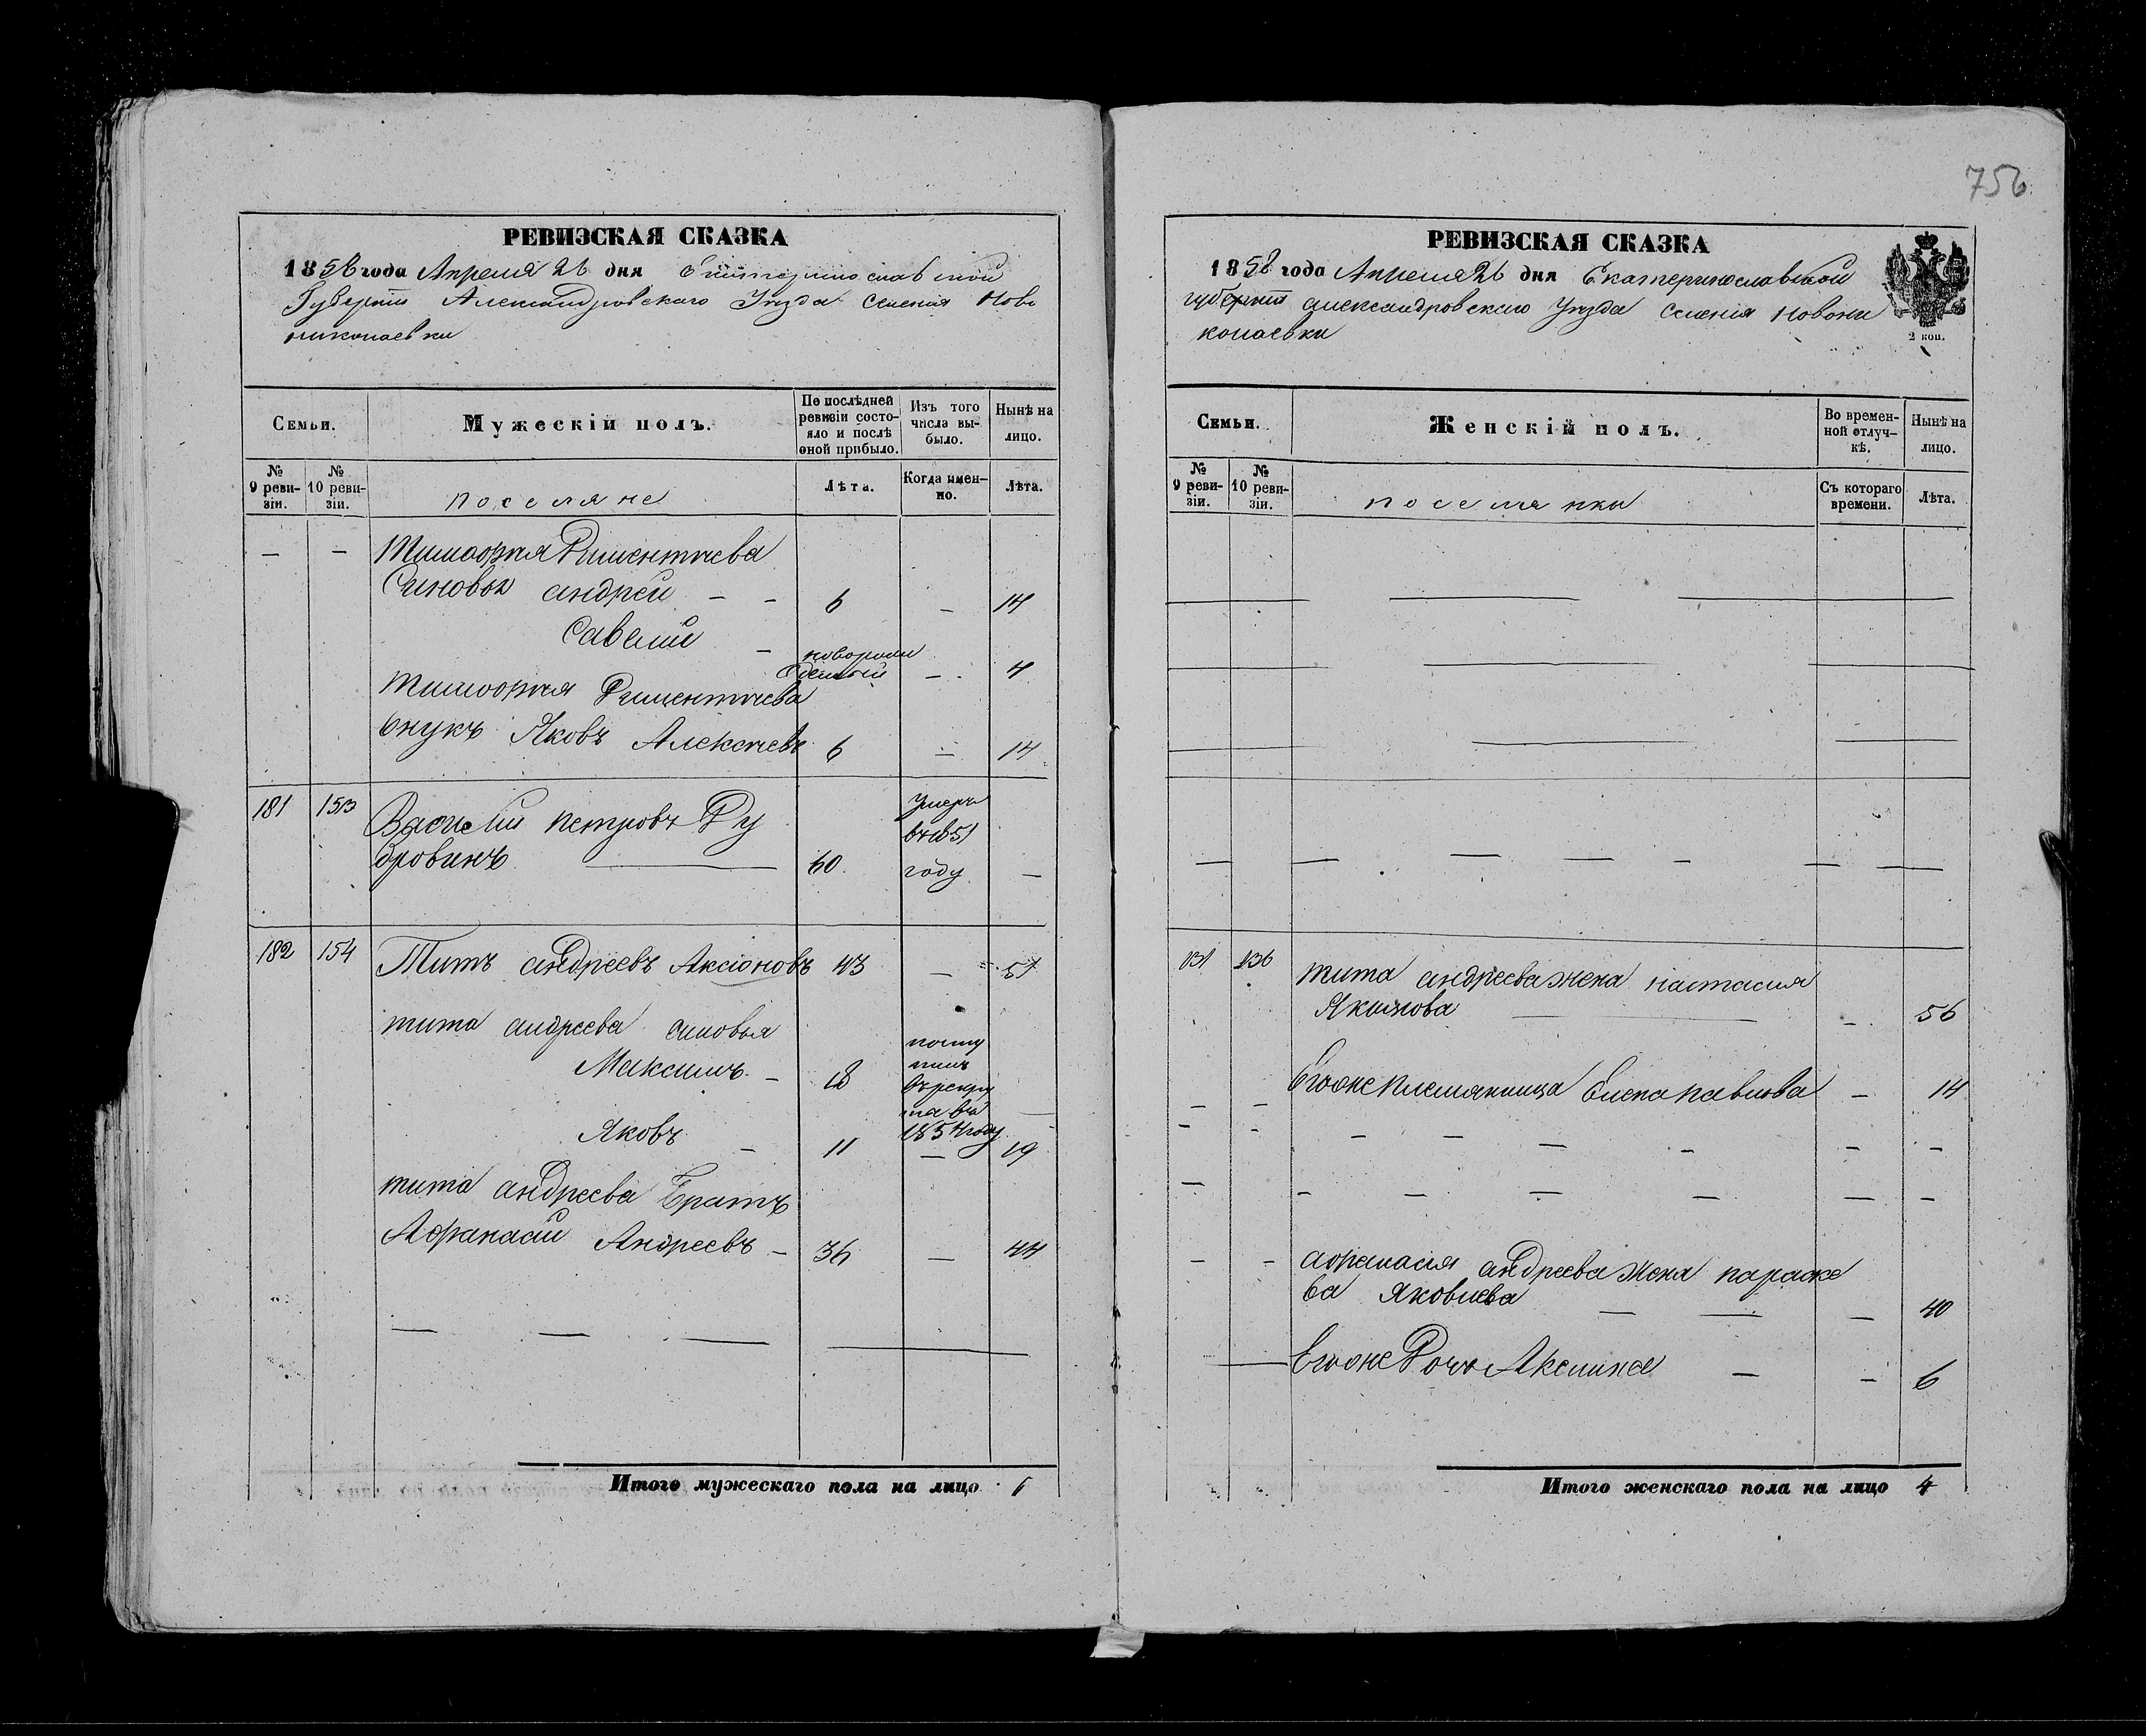 756
РЕВИЗСКАЯ СКАЗКА
1858 года Апреля 26 дня Екатеринославской
Губерніи Александровскаго Уѣзда Селенія Ново
николаевки
Семьи.
Мужескій полъ.
По послѣдней ревизіи состояло и послѣ оной прибыло.
Изъ того числа выбыло.
Нынѣ на лицо.
№ 9 ревизіи.
№ 10 ревизіи.
поселяне
Лѣта.
Когда именно.
Лѣта.
— —
Сыновья андрей — — 6 — 14
Савелий — новорож
денный — 4
внукъ Яковъ Алексѣевъ 6 — 14
181 153 Василий петровъ Ду
бровинъ — 60 Умеръ въ 1851 году —
182 154 Титъ андреевъ Аксіоновъ 43 — 51
тита андреева сыновья
Максимъ — 18 посту
пилъ
врекру
та въ
1854 году —
Яковъ — 11 — 19
тита андреева Братъ
Афанасій Андреевъ — 36 — 44
— — — —
Итого мужескаго пола на лицо 6
РЕВИЗСКАЯ СКАЗКА
1858 года Апреля 26 дня Екатеринославской
губерніи александровскаго Уѣзда Селенія Новони
колаевки
2 коп.
Семьи.
Женскій полъ.
Во временной отлучкѣ.
Нынѣ на лицо.
№ 9 ревизіи.
№ 10 ревизіи.
поселянки
Съ котораго времени.
Лѣта.
131 136 тита андреева жена настасия
Якимова — — 56
— — Егоже племянница Елена павлова — 14
— — афанасия андреева жена параске
ва Яковлева — — — 40
— Егоже Дочь Аксинья — — 6
Итого женскаго пола на лицо 4